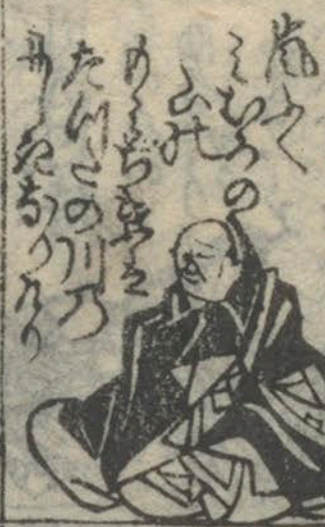 嵐ふく
みむろの
山の
もみぢ葉は
たつたの川乃
にしきなりけり